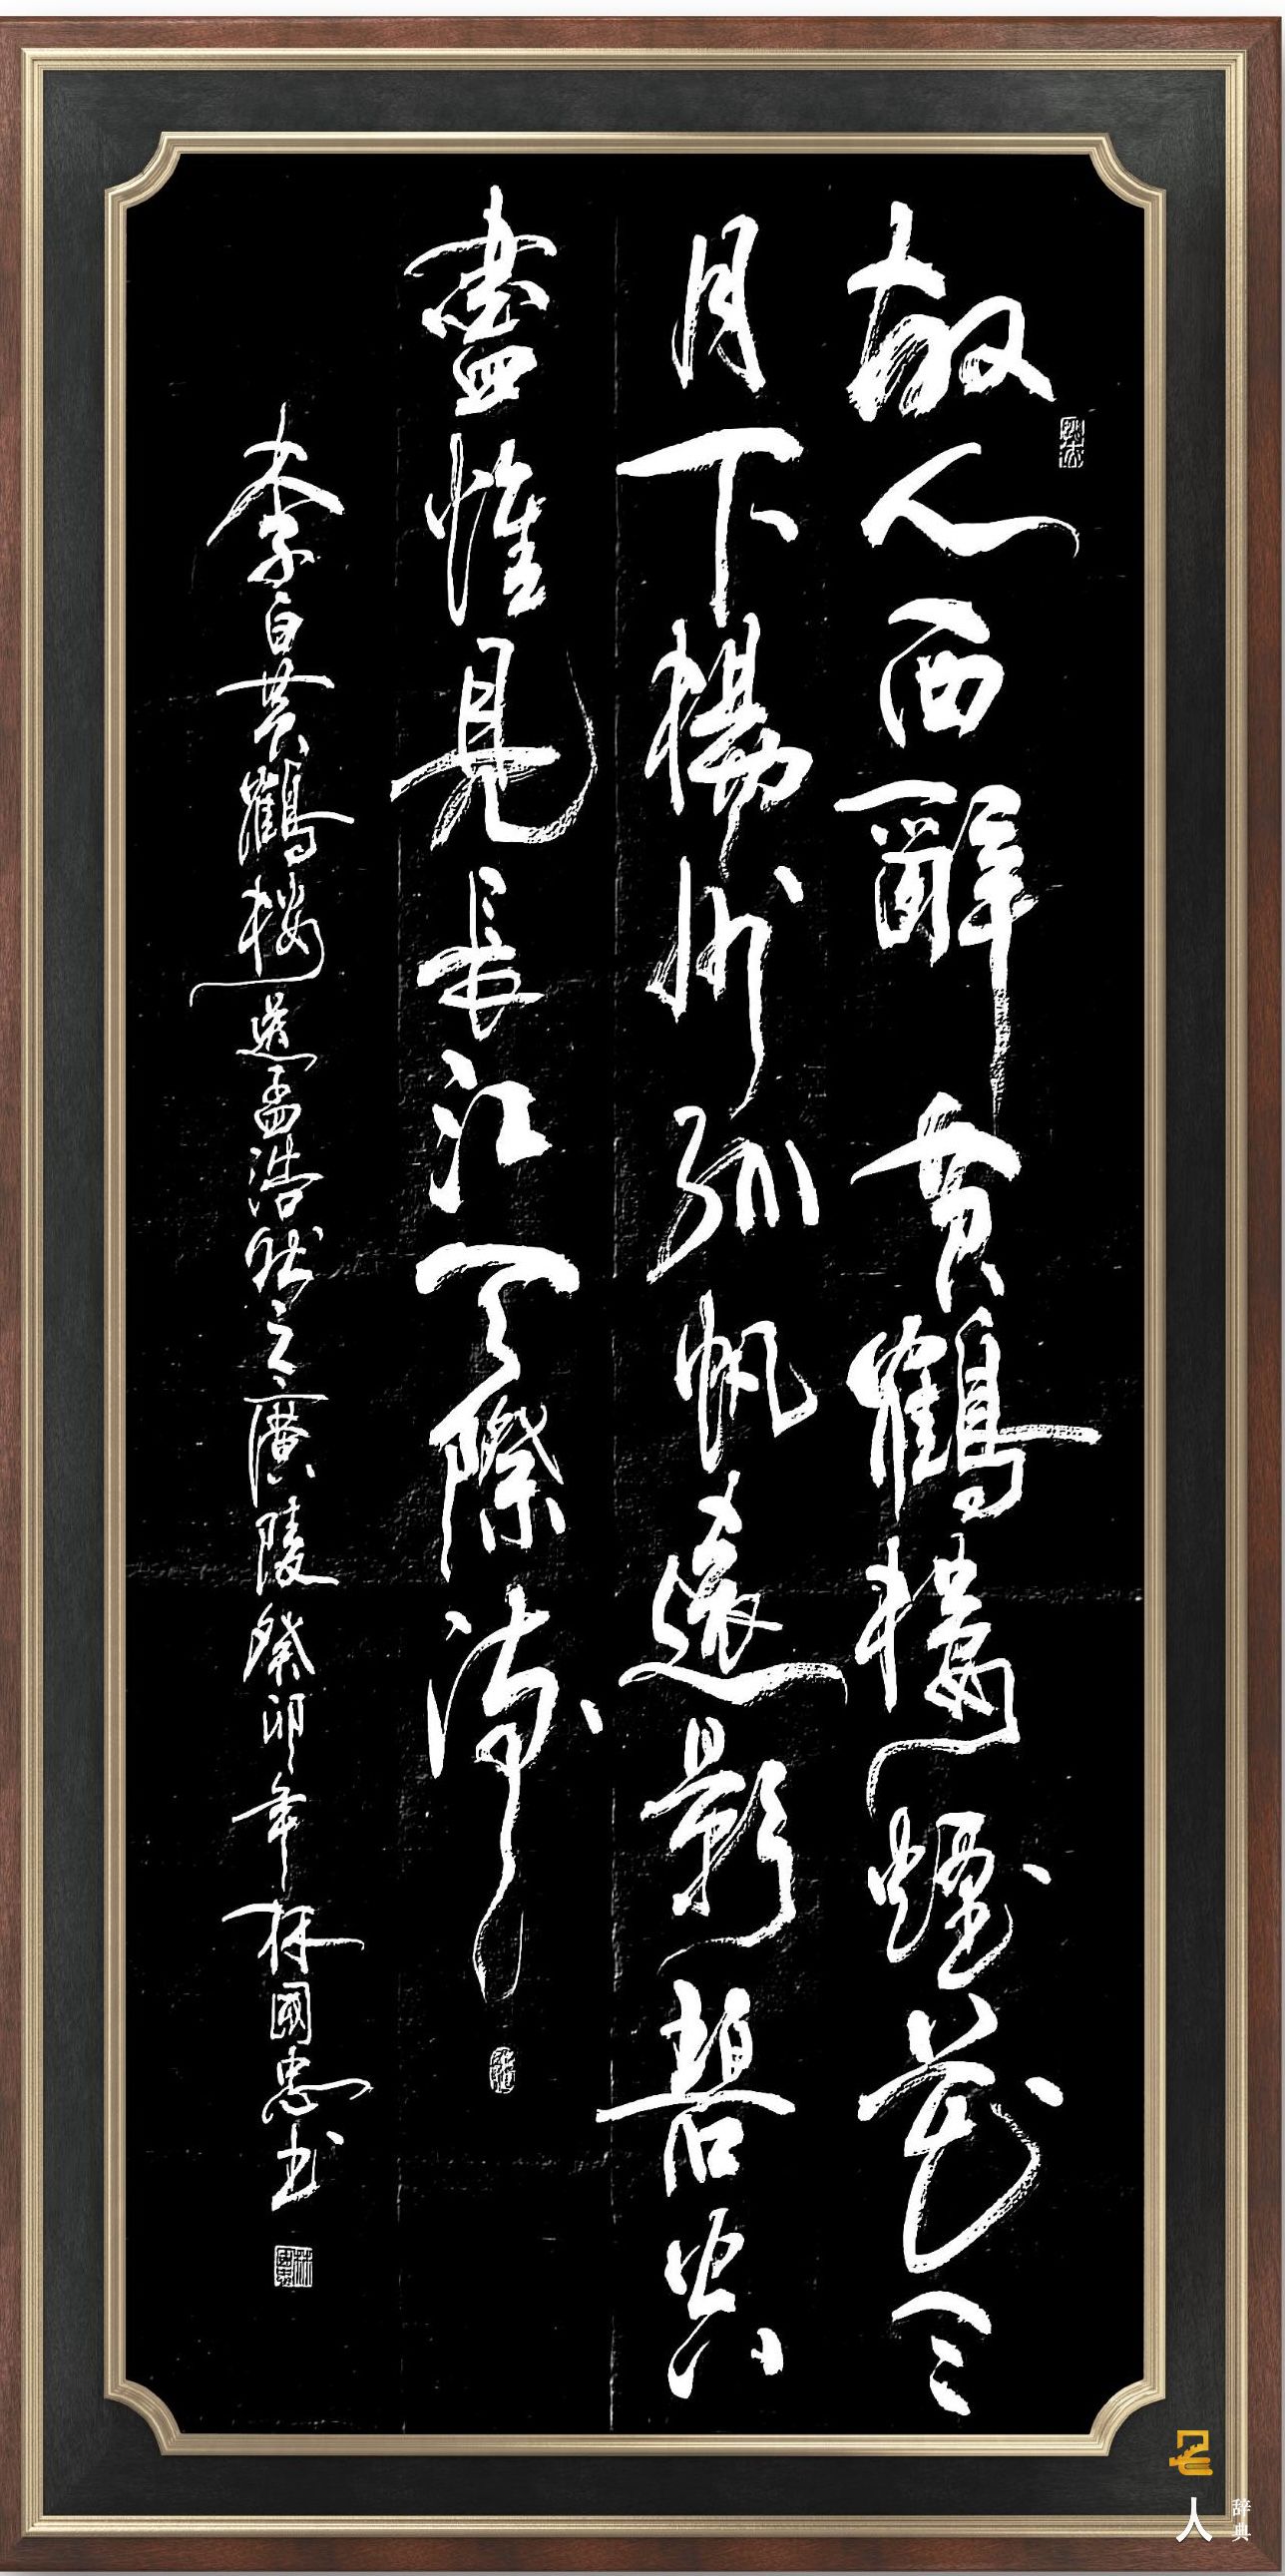 故人西辭黄鶴樓煙花三
月下揚州孤帆遠影碧空
盡惟見長江天際流
李白黄鶴楼送孟浩然之廣陵癸卯年林國忠书
林國忠
名人辞典